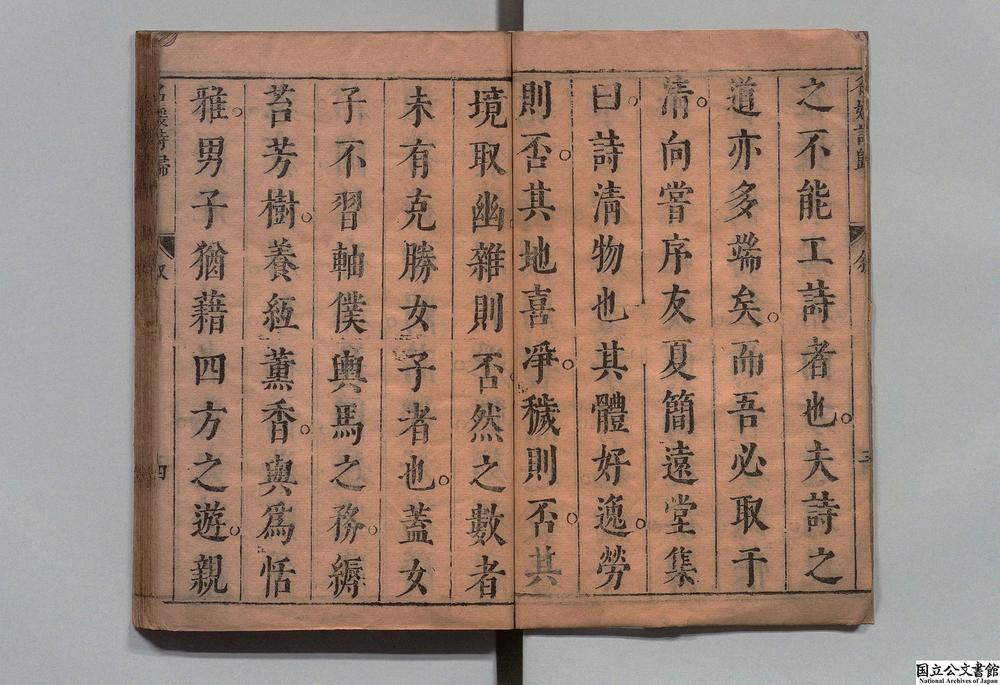 名媛詩歸
敘
三
之不能工詩者也。夫詩之
道亦多端矣。而吾必取于
清。向嘗序友夏簡遠堂集
曰。詩清物也其體好逸。勞
則否。其地喜凈。穢則否。其
境取幽雜則否然之數者
未有克勝女子者也。蓋女
子不習軸僕輿馬之務。縟
苔芳樹。養絚薰香。與為恬
雅。男子猶藉四方之遊。親
名媛詩歸
敘
四
国立公文書館
National Archives of Japan